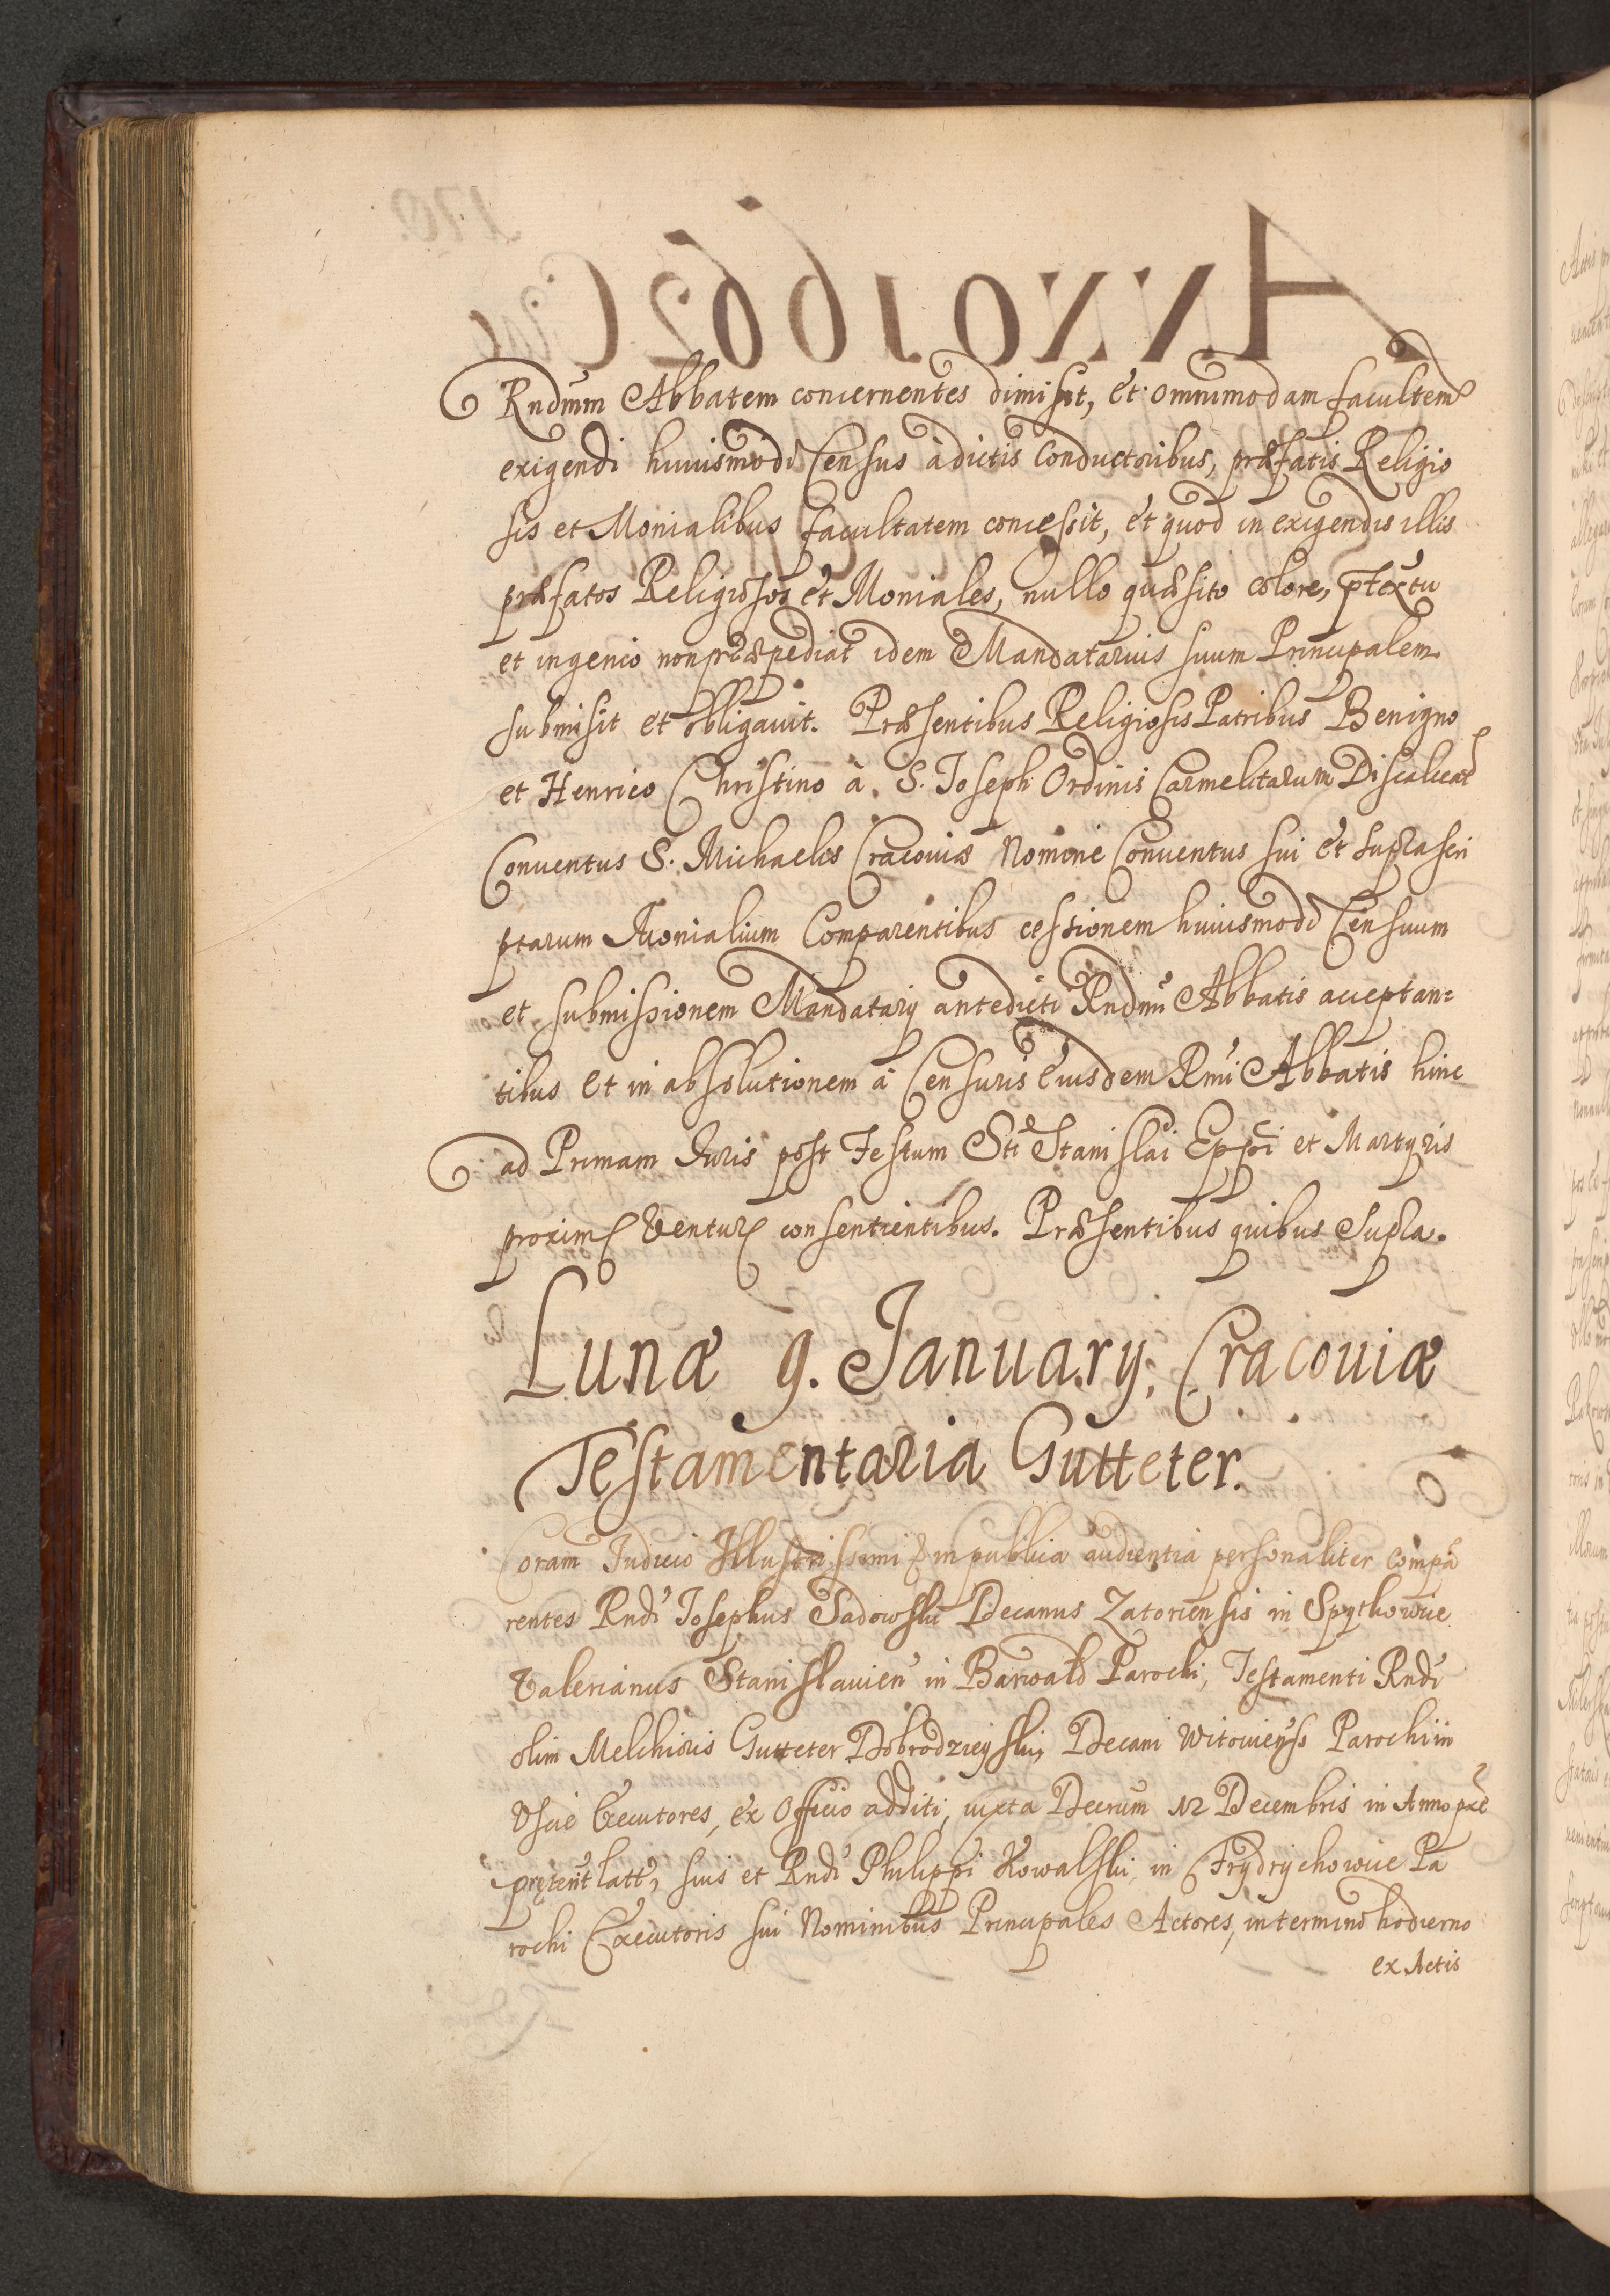 Rndmm Abbatem concernentes dimisit, et omnimodam facultem
exigendi huiusmodi Census à dictis Conductoribus, præfatis Religio
sis et Monialibus facultatem concessit, et quod in exigendis illis
præfatos Religiosos et Moniales, nullo quæsito colore, ptextu
et ingenio non præpediat idem Mandatarius suum Principalem
submisit et obligauit. Præsentibus Religiosis Patribus Benigno
et Henrico Christino à S. Joseph Ordinis Carmelitarum Discalceat
Conuentus S. Michaelis Cracouiæ Nomine Conuentus sui et suprascri
ptarum Monialium Comparentibus cessionem huiusmodi Censuum
et submissionem Mandatarij antedicti Rndmi Abbatis acceptan=
tibus et in absolutionem à Censuris eiusdem Rmi Abbatis hinc
ad Primam Juris post Festum Sti Stanislai Eppi et Martyris
proxime venture consentientibus. Præsentibus quibus Supra.
Lunæ 9. January, Cracouiæ
Testamentaria Gutteter.
Coram Judicio Illustrissimi & in publica audientia personaliter compa
rentes Rndi Josephus Sadowski Decanus Zatoriensis in Spytkowice
Valerianus Stanislauien in Barwald Parochi, Testamenti Rndi
olim Melchioris Gutteter Dobrodzieyski, Decani Witouiens Parochi in
Vscie Executores, ex Officio additi, iuxta Decrum 12 Decembris in Anno pxe
prętent latt, suis et Rndi Philippi Kowalski in Frydrychowice Pa
rochi Executoris sui Nominibus Principales Actores, in termino hodierno
ex Actis